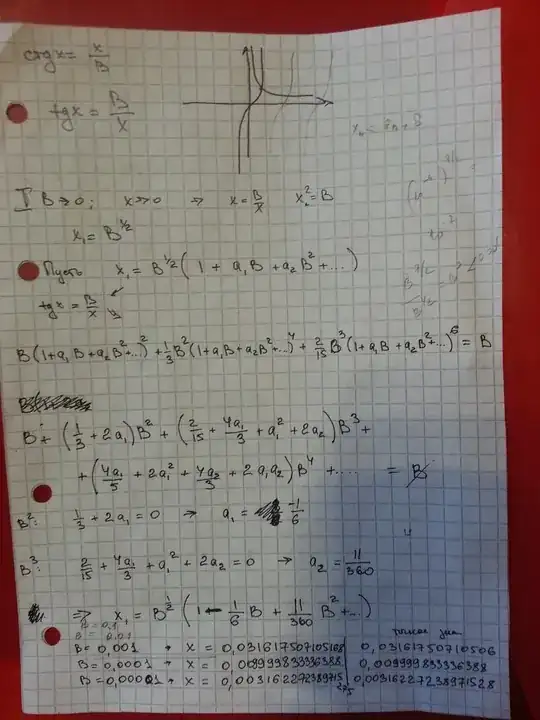 ctgx = x/B
tgx = B/x
I B→0; x→0 ⇒ x = B/x x₁² = B
x₁ = B^(1/2)
Пусть x₁ = B^(1/2) (1 + a₁B + a₂B² + ...)
tgx = B/x
B(1+a₁B+a₂B²+...)² + 1/3 B²(1+a₁B+a₂B²+...)⁴ + 2/15 B³(1+a₁B+a₂B²+...)⁶ = B
B + (1/3 + 2a₁)B² + (2/15 + 4a₁/3 + a₁² + 2a₂)B³ +
+ (4a₁/5 + 2a₁² + 4a₂/3 + 2a₁a₂)B⁴ + .... = B
B²: 1/3 + 2a₁ = 0 → a₁ = -1/6
B³: 2/15 + 4a₁/3 + a₁² + 2a₂ = 0 → a₂ = 11/360
⇒ x₁ = B^(1/2) (1 - 1/6 B + 11/360 B² + ...)
B = 0,1
B = 0,01
B = 0,001 → x = 0,0316175071051 0,03161750710506
B = 0,0001 → x = 0,00999983333 6388 0,009999833336388
B = 0,00001 → x = 0,00316227238971 0,00316227238971528